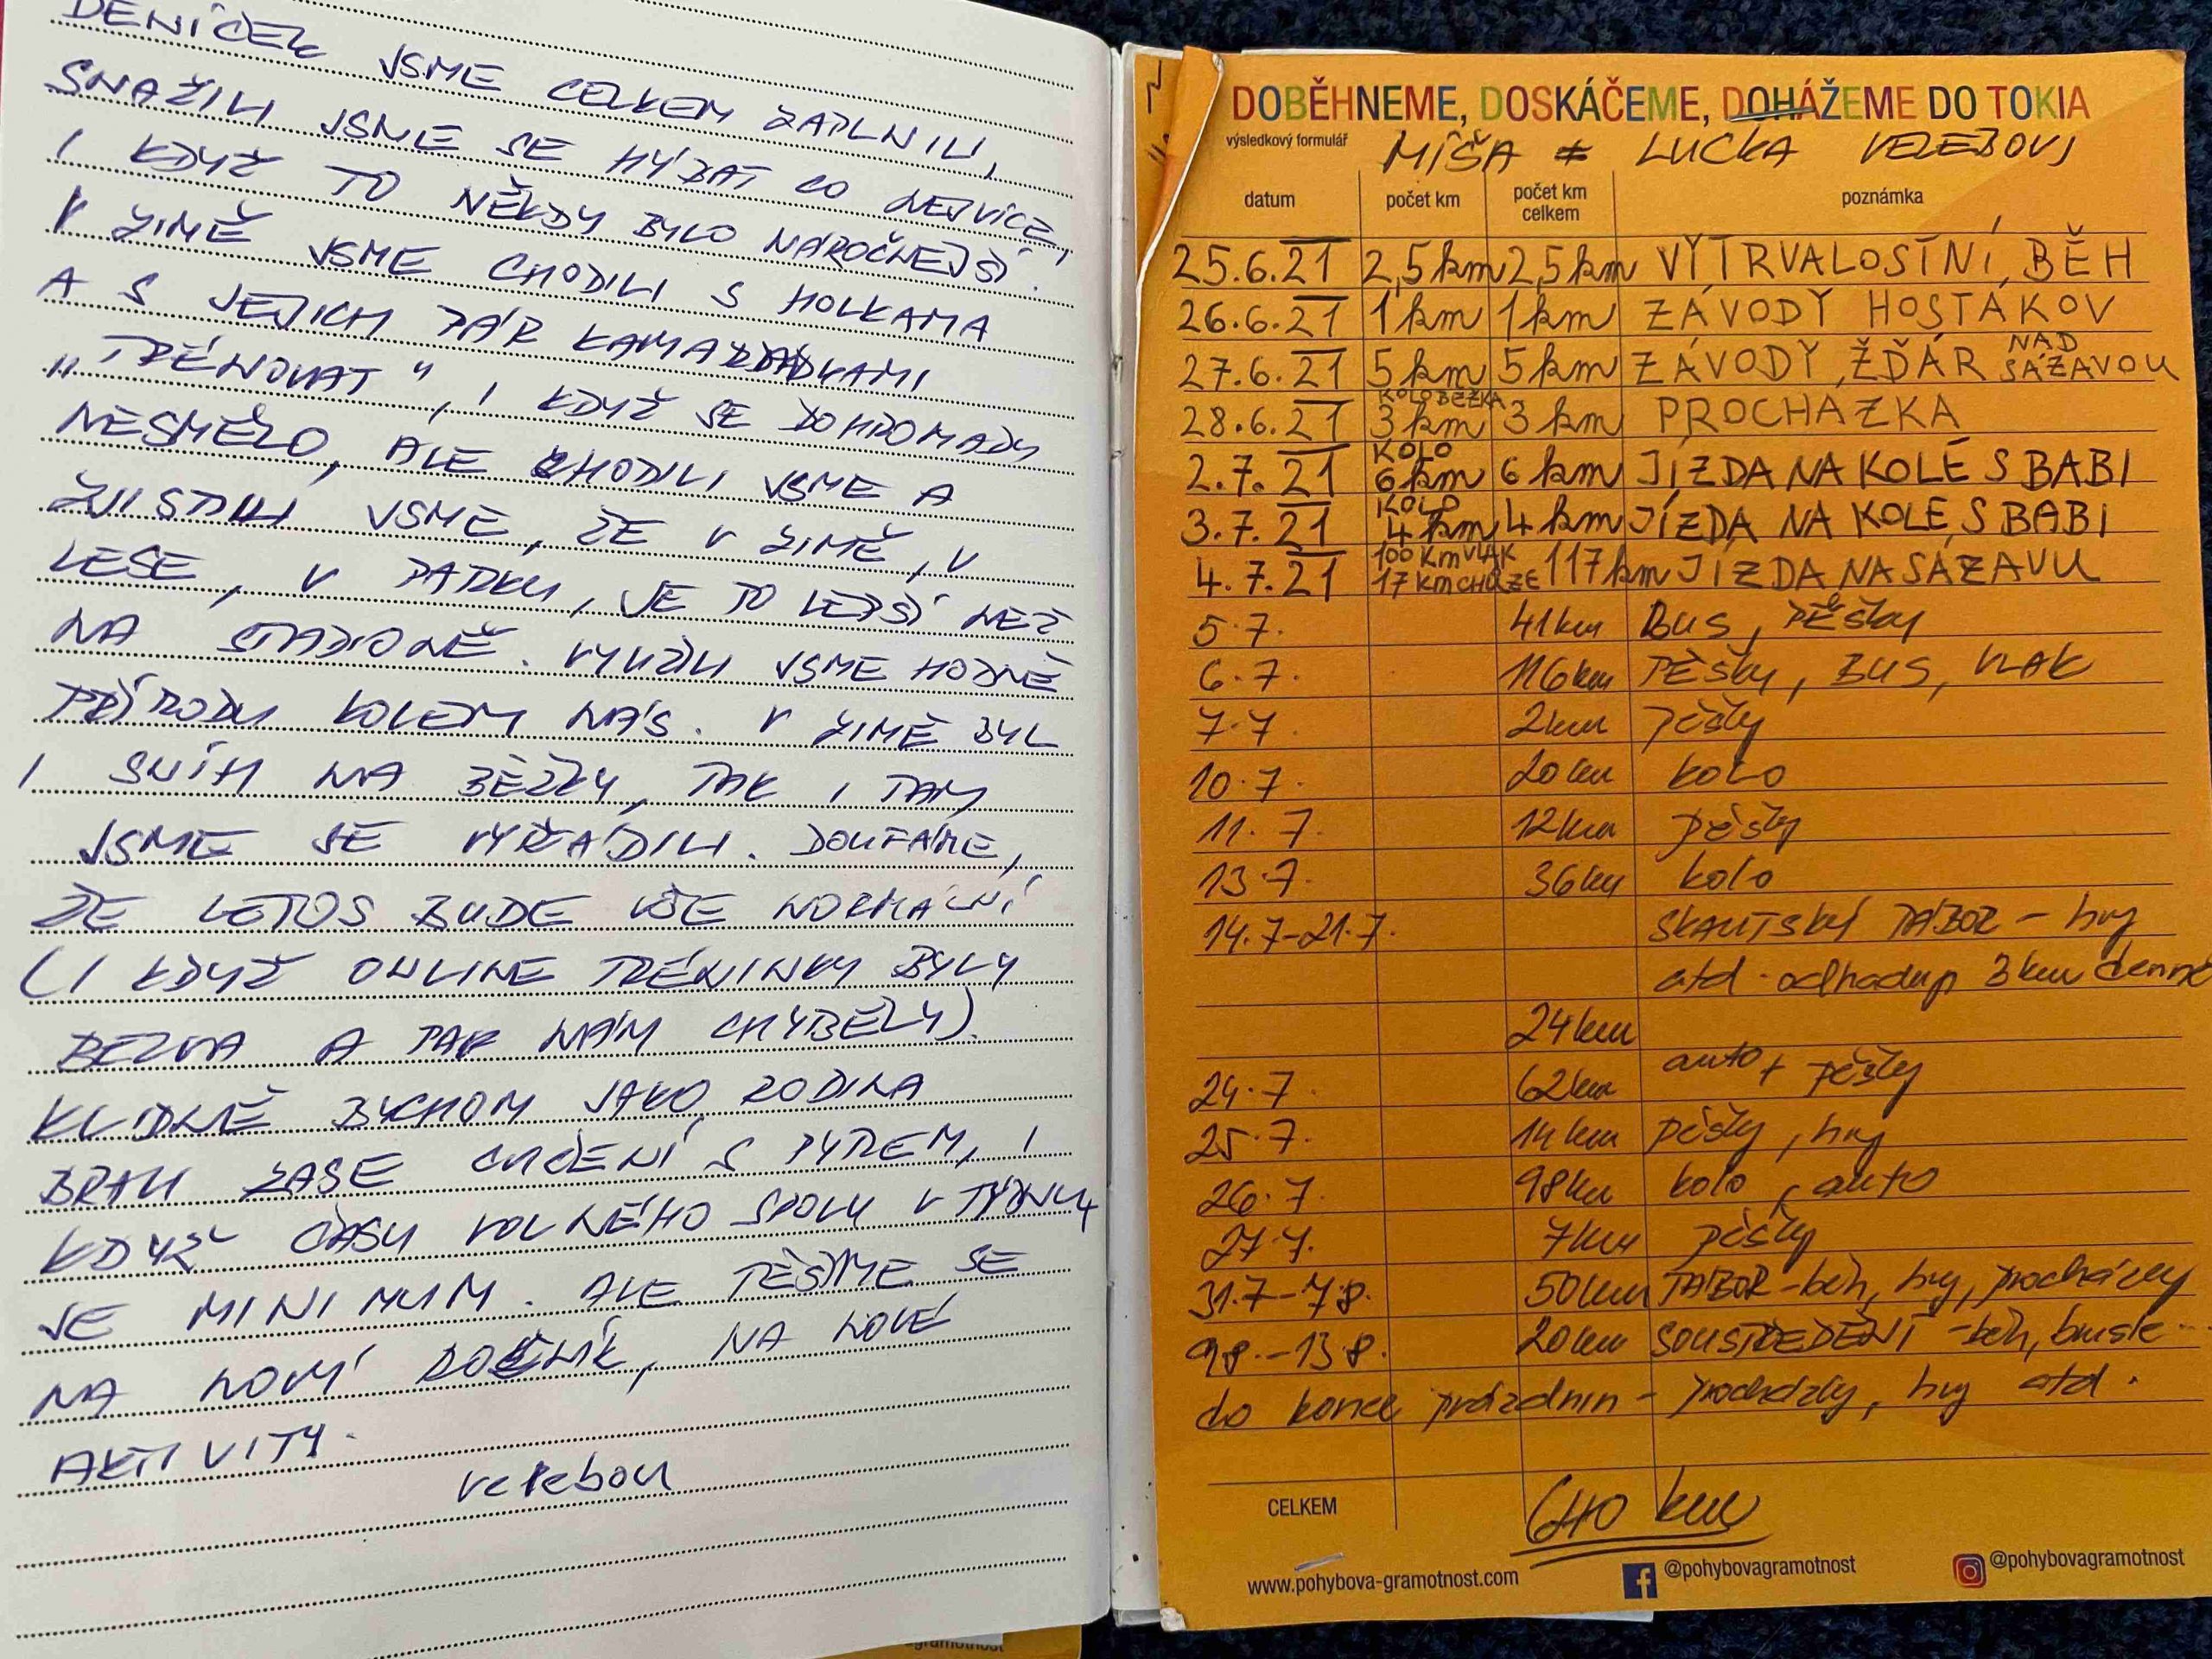 DENÍČEK JSME CELKEM ZAPLNILI,
SNAŽILI JSME SE HÝBAT CO NEJVÍCE,
I KDYŽ TO NĚKDY BYLO NÁROČNEJŠÍ.
V ZIMĚ JSME CHODILI S HOLKAMA
A S JEJICH PÁR KAMARÁDKAMI
„TRÉNOVAT“, I KDYŽ SE DOHROMADY
NESMĚLO, ALE CHODILI JSME A
ZJISTILI JSME, ŽE V ZIMĚ, V
LESE, V PARKU, JE TO LEPŠÍ NEŽ
NA STADIONĚ. VYUŽILI JSME HODNĚ
PŘÍRODU KOLEM NÁS. V ZIMĚ BYL
I SNÍH NA BĚŽKY, TAK I TAM
JSME SE VYŘÁDILI. DOUFÁME,
ŽE LETOS BUDE VŠE NORMÁLNÍ
(I KDYŽ ONLINE TRÉNINKY BYLY
BEZVA A PAK NÁM CHYBĚLY).
KLIDNĚ BYCHOM JAKO RODINA
BRALI ZASE CVIČENÍ S PYREM, I
KDYŽ ČASU VOLNÉHO SPOLU V TÝDNU
JE MINIMUM. ALE TĚŠÍME SE
NA NOVÝ ROČNÍK, NA NOVÉ
AKTIVITY.
Velebovi
DOBĚHNEME, DOSKÁČEME, DOHÁŽEME DO TOKIA
výsledkový formulář MÍŠA LUCKA VELEBOVI
datum počet km počet km celkem poznámka
25.6.21 2,5km 2,5km VYTRVALOSTNÍ BĚH
26.6.21 1km 1km ZÁVODY HOSTÁKOV
27.6.21 5km 5km ZÁVODY, ŽĎÁR NAD SÁZAVOU
28.6.21 KOLOBĚŽKA 3km 3km PROCHÁZKA
2.7.21 KOLO 6km 6km JÍZDA NA KOLE S BABI
3.7.21 KOLO 4km 4km JÍZDA NA KOLE S BABI
4.7.21 100 Km VLAK 17 KM CHŮZE 117km JÍZDA NA SÁZAVU
5.7. 41km BUS, PĚŠKY
6.7. 116km PĚŠKY, BUS, VLAK
7.7. 2km pěšky
10.7. 20km kolo
11.7. 12km pěšky
13.7. 36km kolo
14.7-21.7. SKAUTSKÝ TÁBOR - hry
atd - odhaduji 3km denně
24km
24.7. 62km auto + pěšky
25.7. 14km pěšky, hry
26.7. 98km kolo, auto
27.7. 7km pěšky
31.7-7.8. 50km TÁBOR - běh, hry, procházky
9.8.-13.8. 20km SOUSTŘEDĚNÍ - běh, brusle..
do konce prázdnin - procházky, hry atd.
CELKEM 640 km
www.pohybova-gramotnost.com @pohybovagramotnost @pohybovagramotnost